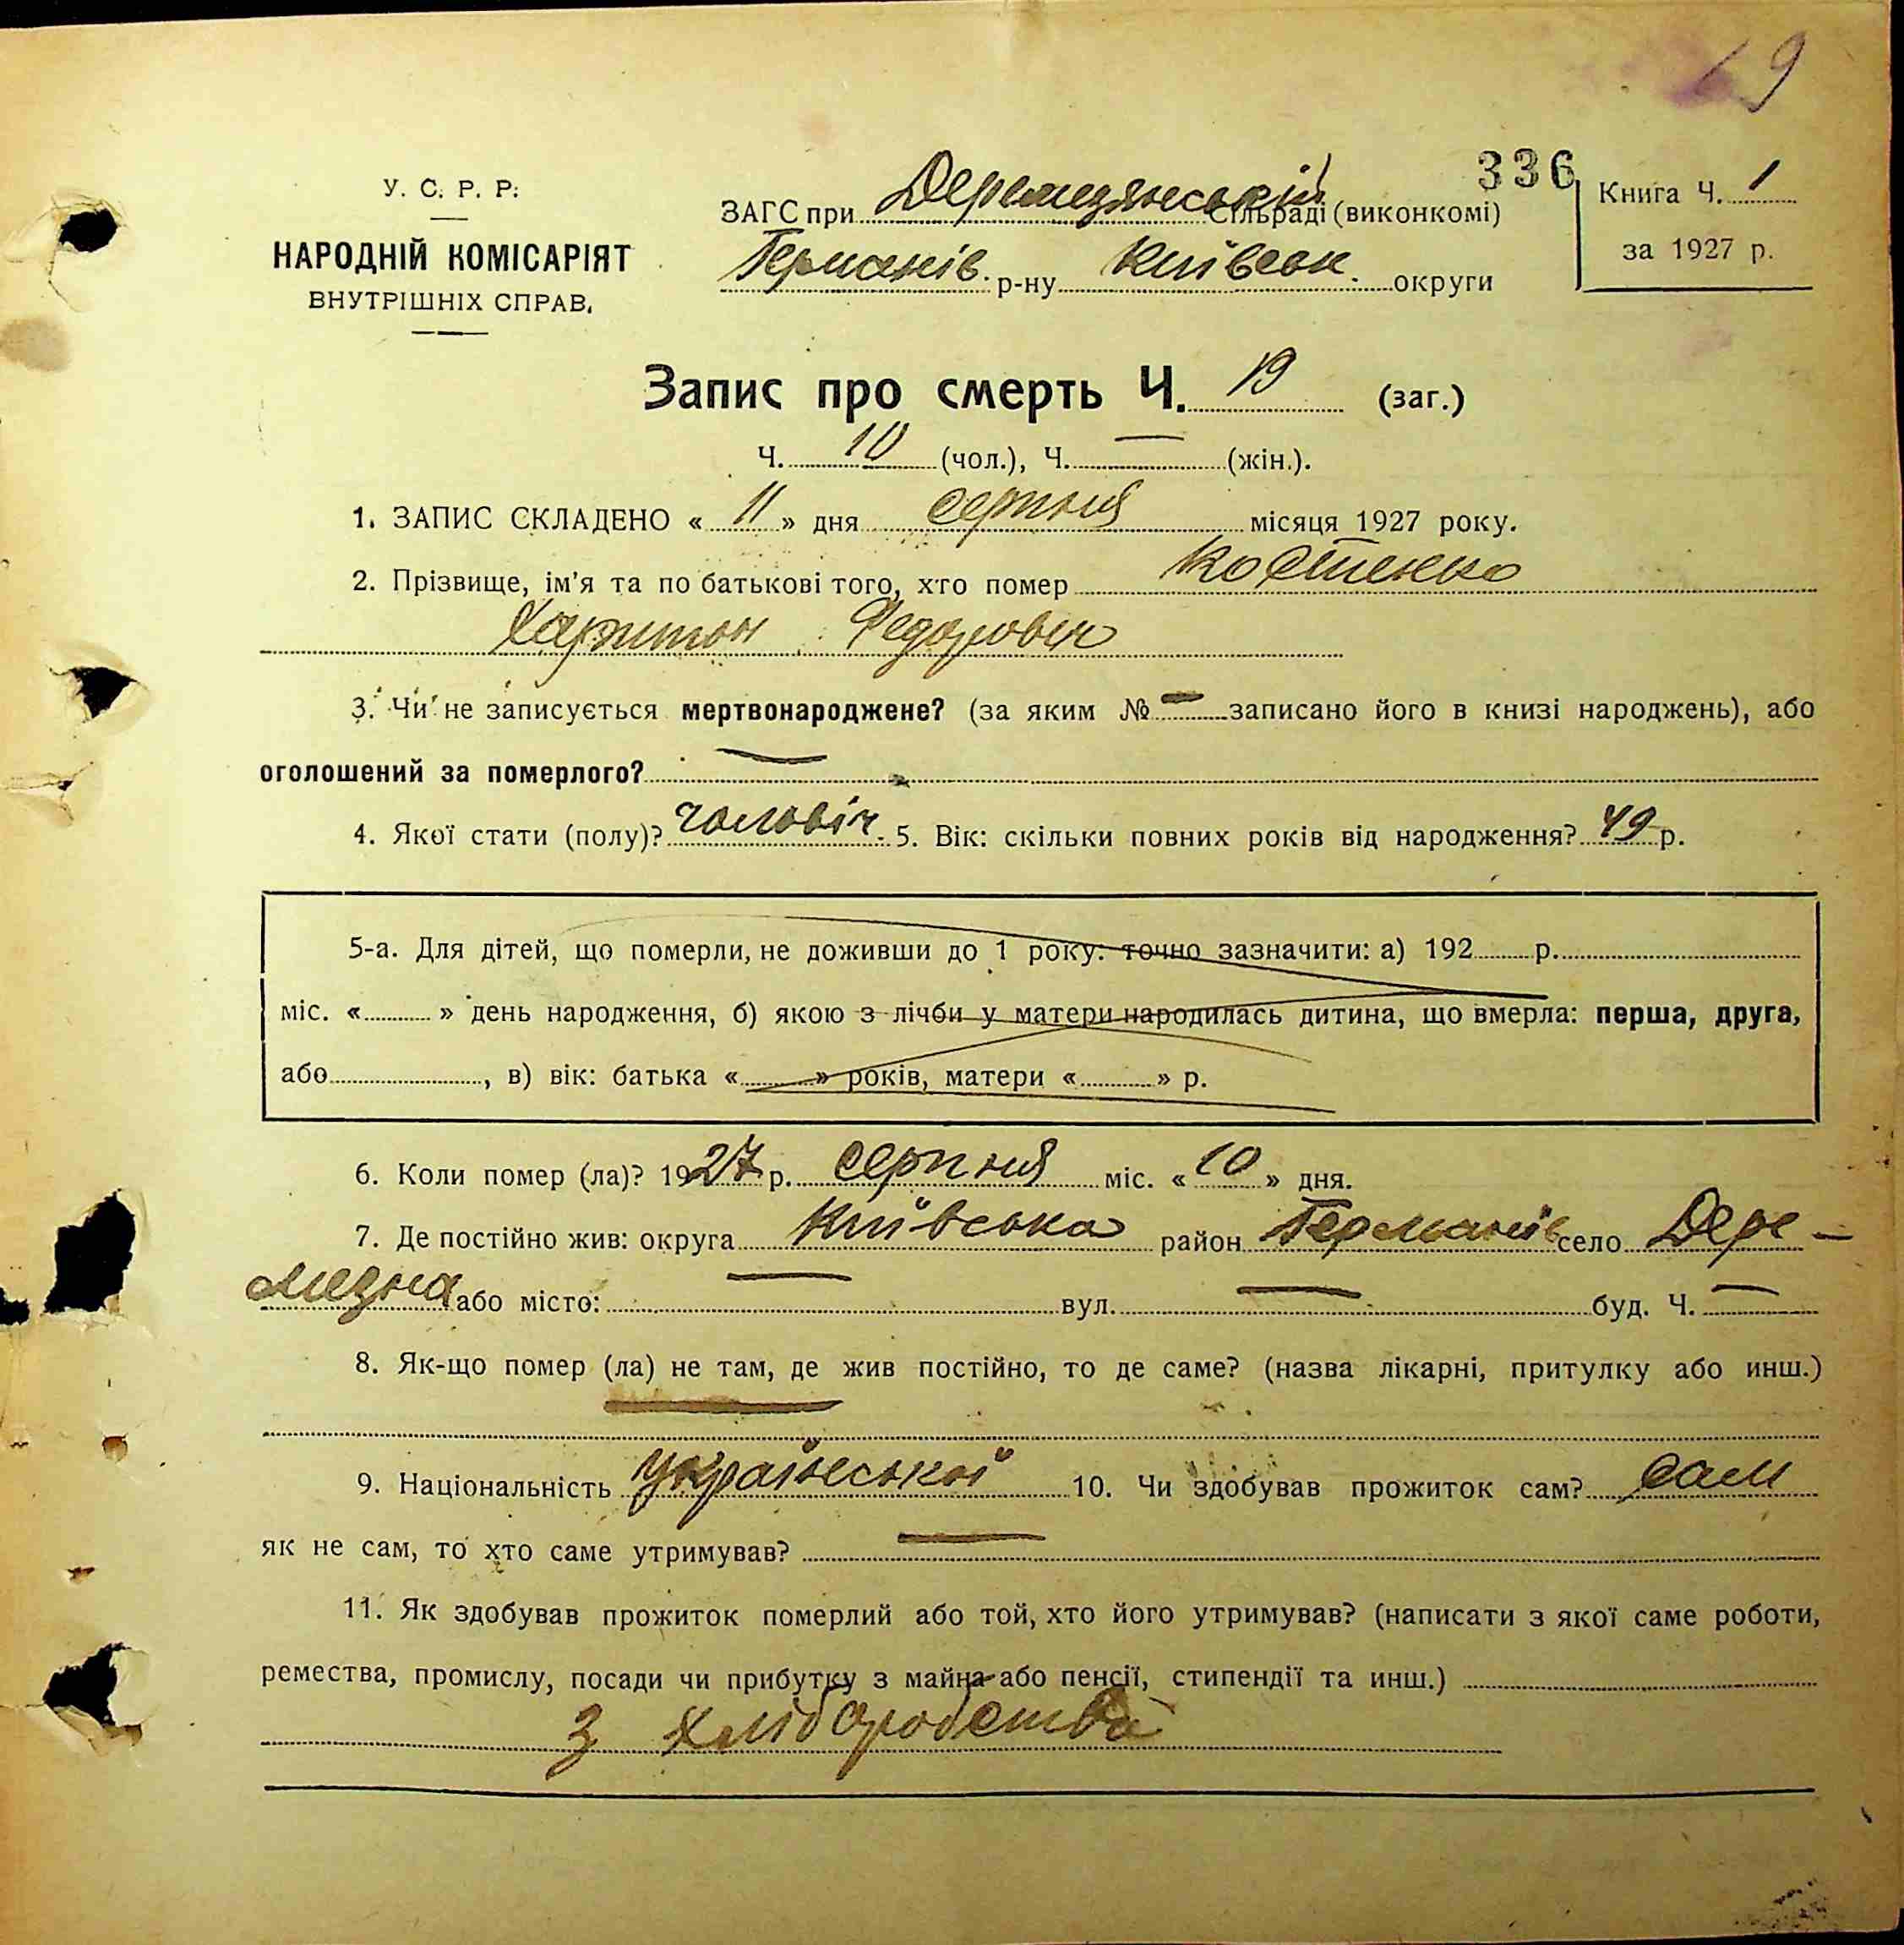 19
336
У. С. Р. Р.
НАРОДНІЙ КОМІСАРІЯТ
ВНУТРІШНІХ СПРАВ.
ЗАГС при Деремезянській Сільраді (виконкомі)
Германів. р-ну Київськ. округи
Книга Ч. 1
за 1927 р.
Запис про смерть Ч. 19 (заг.)
Ч. 10 (чол.), Ч. — (жін.).
1. ЗАПИС СКЛАДЕНО « 11 » дня серпня місяця 1927 року.
2. Прізвище, ім'я та по батькові того, хто помер Костенко
Харитон Федорович
3. Чи не записується мертвонароджене? (за яким № — записано його в книзі народжень), або
оголошений за померлого? —
4. Якої стати (полу)? чоловіч. 5. Вік: скільки повних років від народження? 49 р.
5-а. Для дітей, що померли, не доживши до 1 року: точно зазначити: а) 192 р.
міс. « » день народження, б) якою з лічби у матери народилась дитина, що вмерла: перша, друга,
або , в) вік: батька « » років, матери « » р.
6. Коли помер (ла)? 1927 р. серпня міс. « 10 » дня.
7. Де постійно жив: округа Київська район Германів село Дере-
мезна або місто: — вул. — буд. Ч. —
8. Як-що помер (ла) не там, де жив постійно, то де саме? (назва лікарні, притулку або инш.)
—
9. Національність української 10. Чи здобував прожиток сам? сам
як не сам, то хто саме утримував? —
11. Як здобував прожиток померлий або той, хто його утримував? (написати з якої саме роботи,
ремества, промислу, посади чи прибутку з майна або пенсії, стипендії та инш.)
З хліборобства